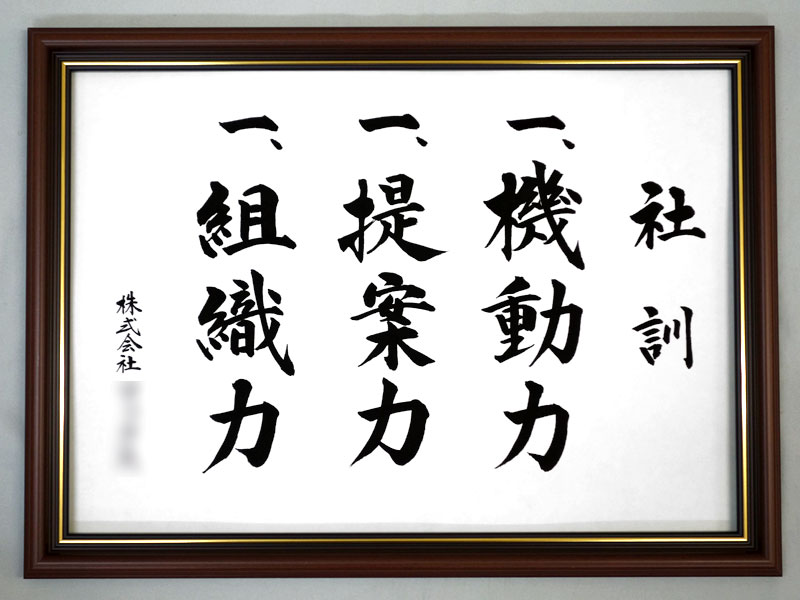 社訓
一、機動力
一、提案力
一、組織力
株式会社